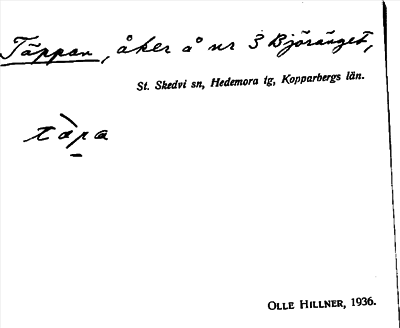 Täppan, åker å nr 3 Björänget,
St. Skedvi sn, Hedemora tg, Kopparbergs län.
tàp̠a
OLLE HILLNER, 1936.